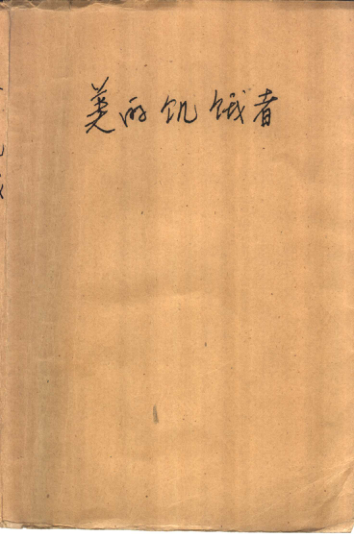 美的饥饿者